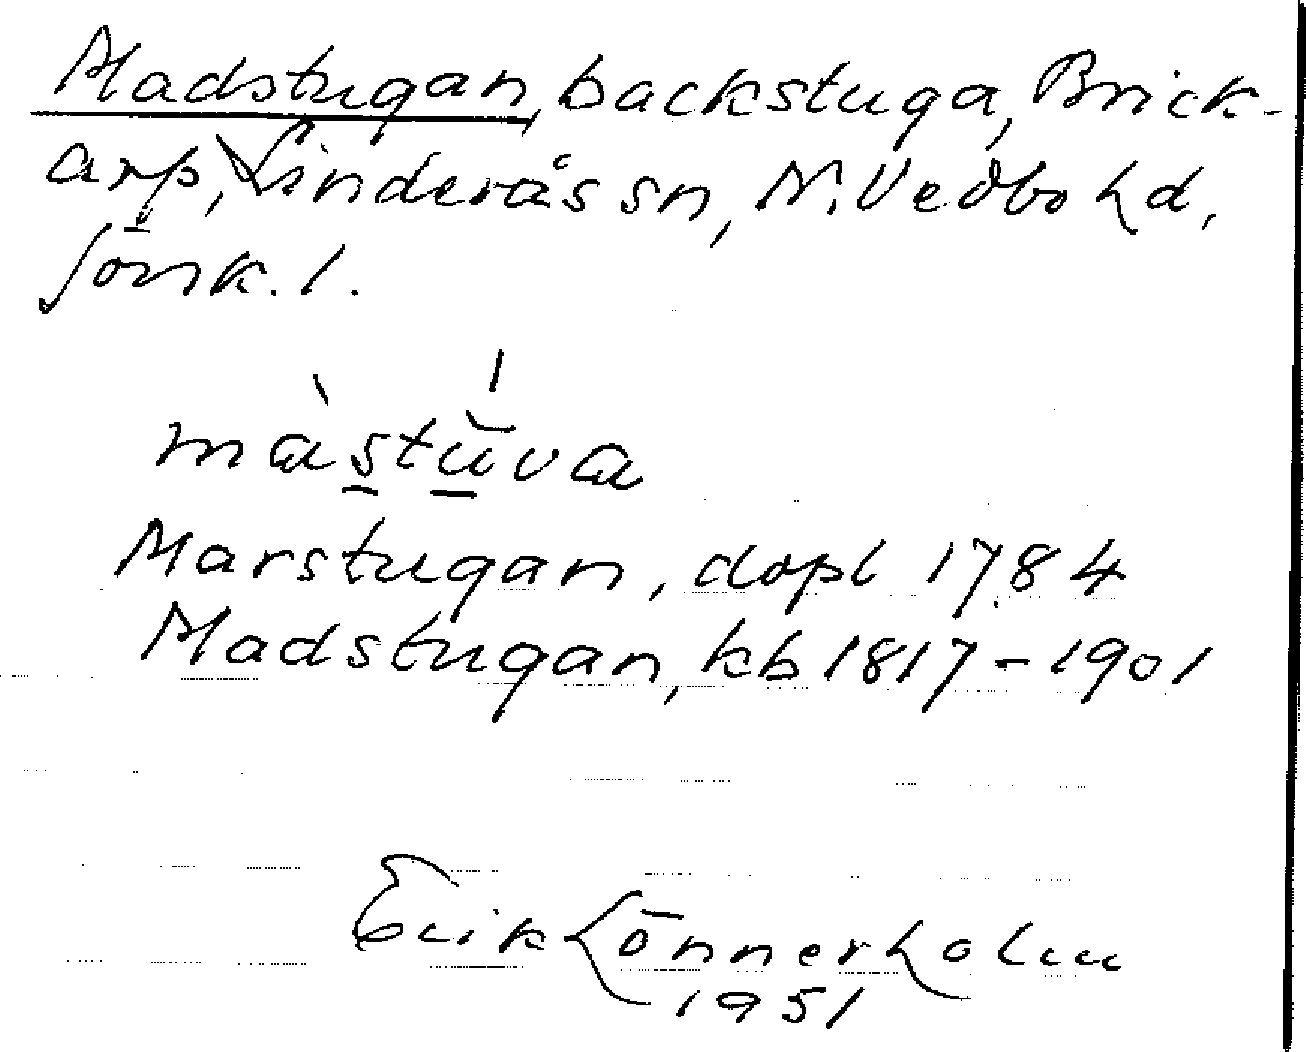 Madstugan, backstuga, Brick-
arp, Linderås sn, N. Vedbo hd,
Jönk. l.
màstŭva
Marstugan, dopl 1784
Madstugan, kb 1817-1901
Erik Lönnerholm
1951